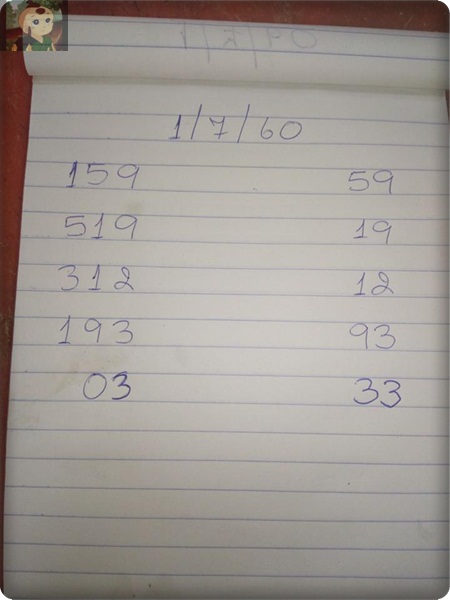 1/7/60
159 59
519 19
312 12
193 93
03 33